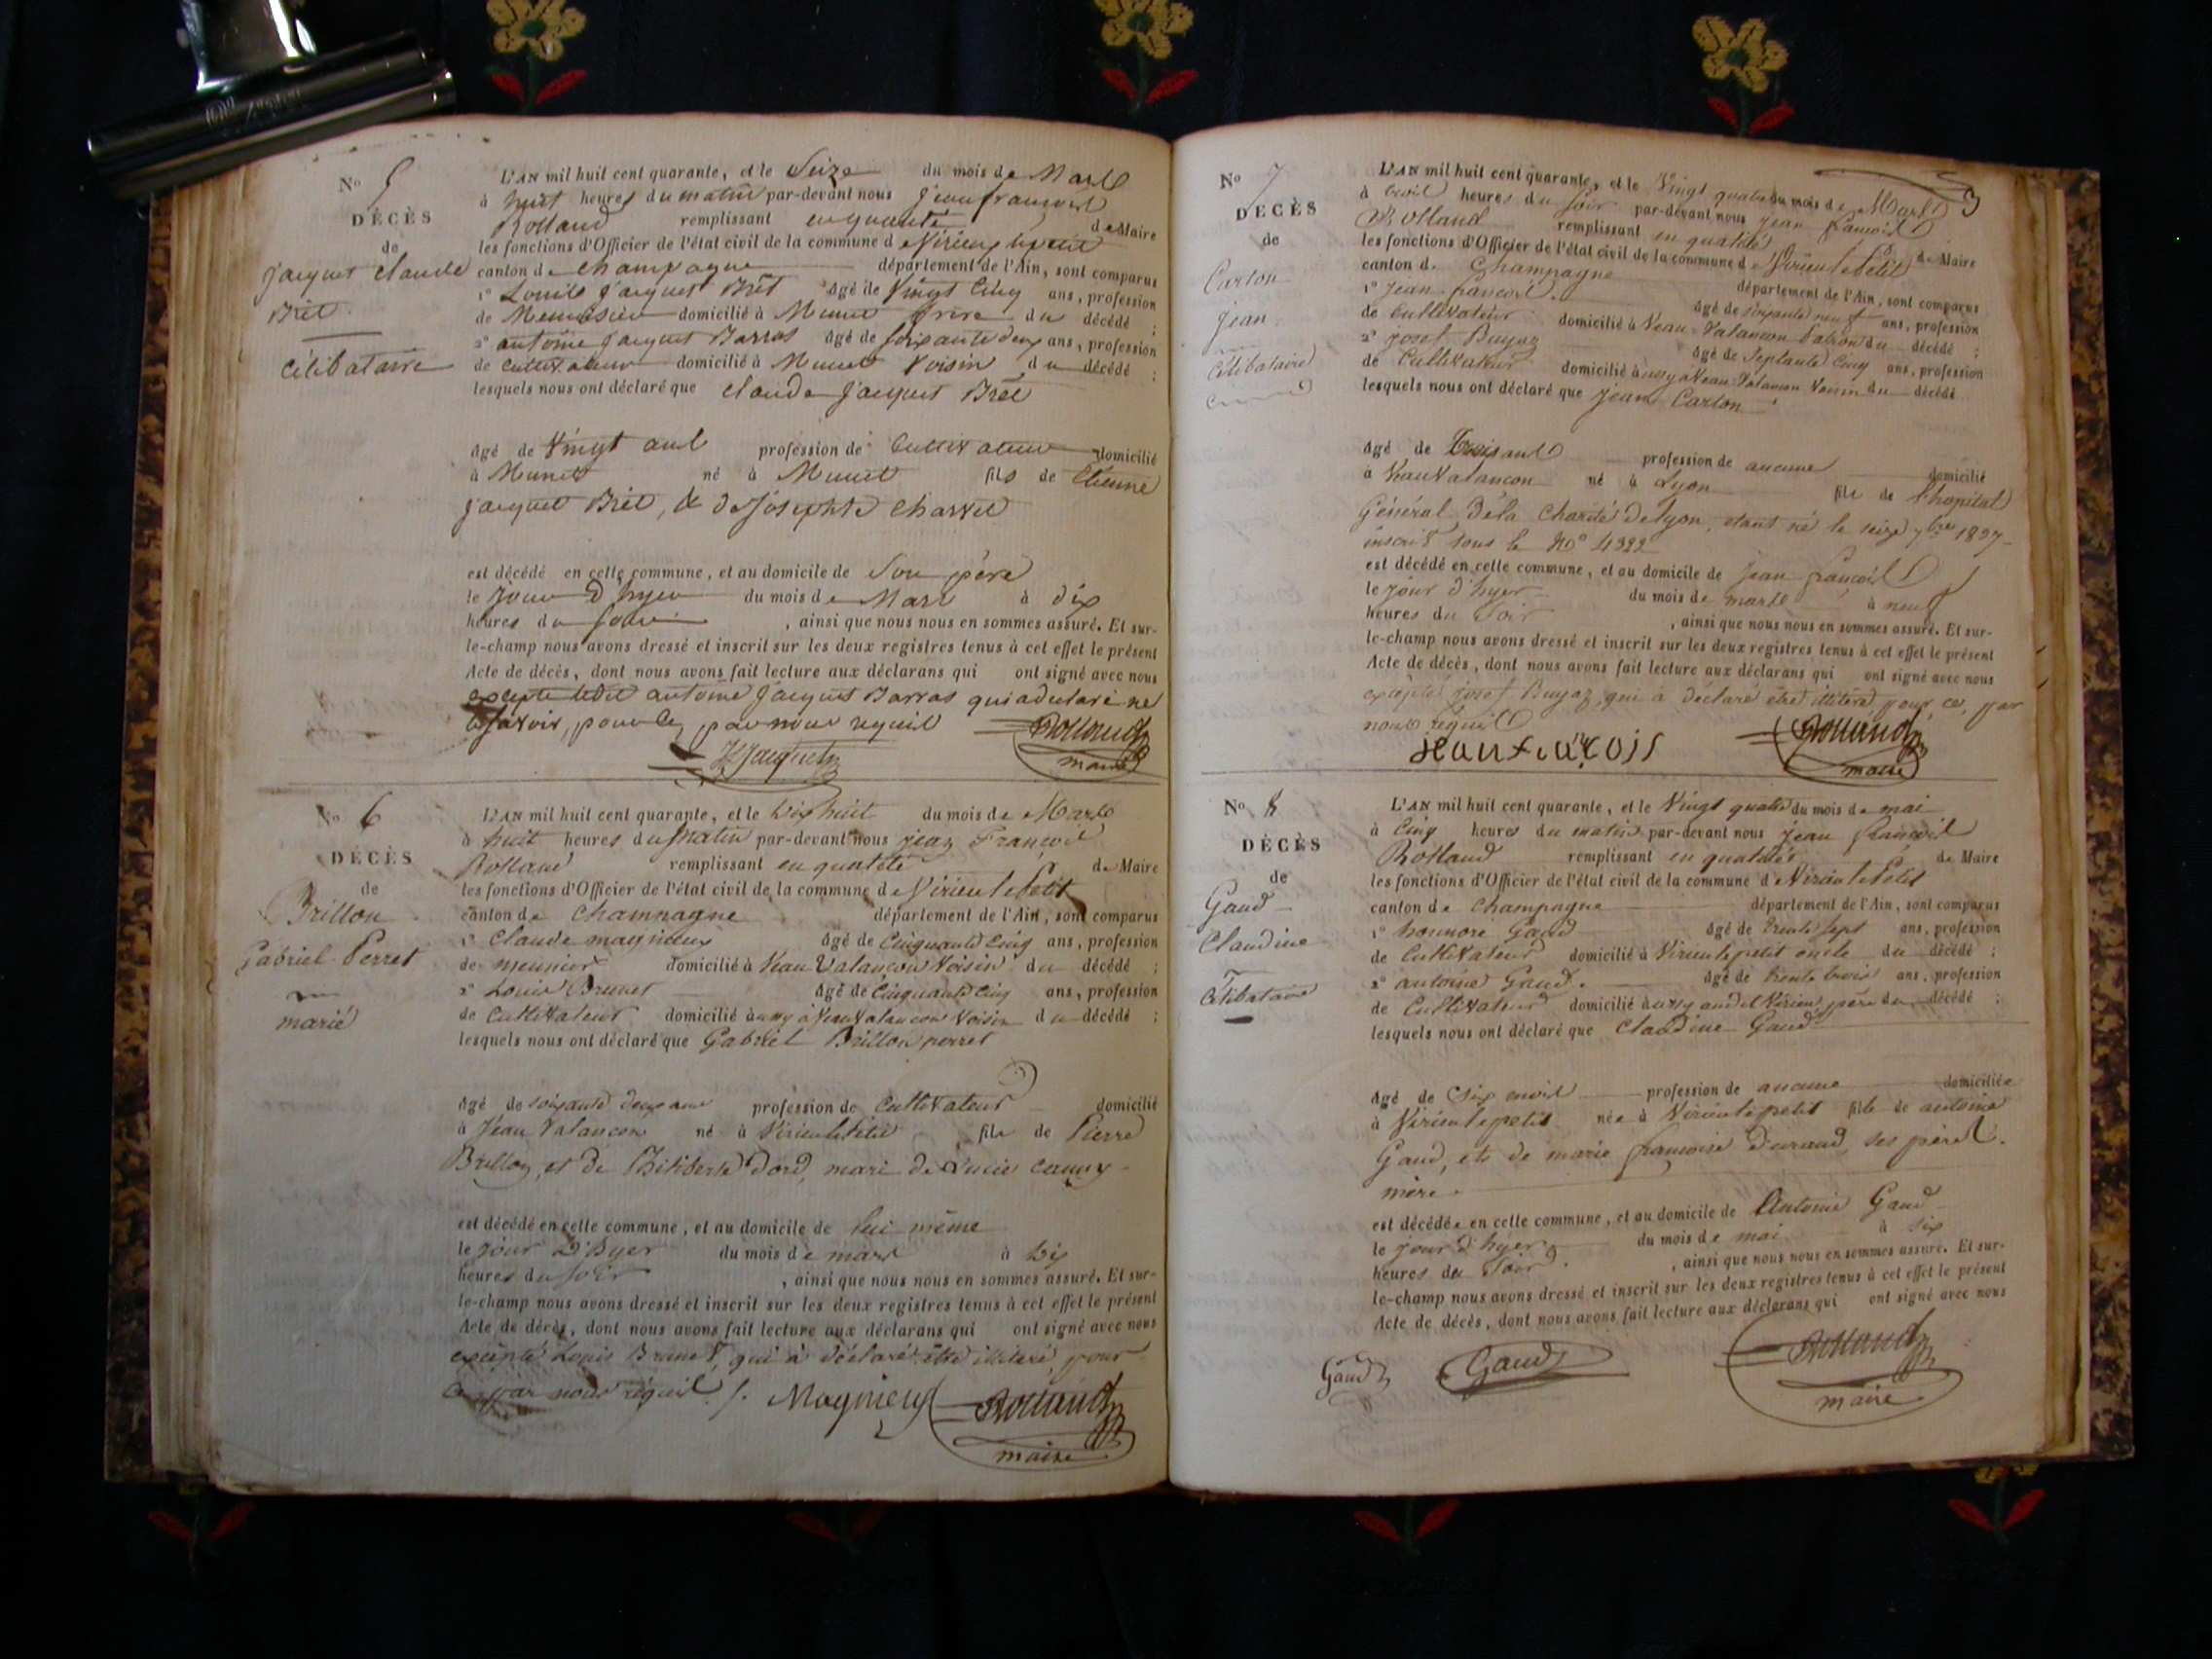 No 5
DÉCÈS
de
jacquet claude
Brét
célibataire
L'AN mil huit cent quarante, et le Seize du mois de Mars
à huit heures du matin par-devant nous jean francois
Rolland remplissant en qualité de Maire
les fonctions d'Officier de l'état civil de la commune de Virieu le petit
canton de champagne département de l'Ain, sont comparus
1° Louis jacquet Brét agé de Vingt Cinq ans, profession
de Menuisier domicilié à Munet frère du décédé ;
2° antoine jacquet Barras agé de soixante deux ans, profession
de cultivateur domicilié à Munet Voisin du décédé ;
lesquels nous ont déclaré que claude jacquet Brét
agé de Vingt ans profession de Cultivateur domicilié
à Munet né à Munet fils de Etienne
jacquet Brét, & de Joséphte charvet
est décédé en cette commune, et au domicile de Son père
le jour d'hyer du mois de Mars à dix
heures du soir , ainsi que nous nous en sommes assuré. Et sur-
le-champ nous avons dressé et inscrit sur les deux registres tenus à cet effet le présent
Acte de décès, dont nous avons fait lecture aux déclarans qui ont signé avec nous
excepté ledit antoine jacquet Barras qui a déclaré ne
le savoir, pour ce par nous requis
Jacquet Rolland
maire
No 6
DÉCÈS
de
Brillon
Gabriel Perret
marié
L'AN mil huit cent quarante, et le dix huit du mois de Mars
à huit heures du matin par-devant nous jean Francois
Rolland remplissant en qualité de Maire
les fonctions d'Officier de l'état civil de la commune de Virieu le Petit
canton de champagne département de l'Ain, sont comparus
1° Claude magnieux agé de Cinquante Cinq ans, profession
de meunier domicilié à Veau Valancon Voisin du décédé ;
2° Louis Brunet agé de Cinquante Cinq ans, profession
de Cultivateur domicilié à ussy à Veau Valancon Voisin du décédé ;
lesquels nous ont déclaré que Gabriel Brillon perret
agé de soixante deux ans profession de Cultivateur domicilié
à Veau Valancon né à Virieu le Petit fils de Pierre
Brillon, et de Philiberte Dord, mari de Lucie
est décédé en cette commune, et au domicile de lui même
le jour d'hyer du mois de mars à dix
heures du soir , ainsi que nous nous en sommes assuré. Et sur-
le-champ nous avons dressé et inscrit sur les deux registres tenus à cet effet le présent
Acte de décès, dont nous avons fait lecture aux déclarans qui ont signé avec nous
excepté Louis Brunet, qui à déclaré être illiteré, pour
ce par nous requis. Magnieux Rolland
maire
3
No 7
DÉCÈS
de
Carton
jean
Célibataire
L'AN mil huit cent quarante, et le Vingt quatre du mois de Mars
à trois heures du soir par-devant nous jean francois
Rolland remplissant en qualité de Maire
les fonctions d'Officier de l'état civil de la commune de Virieu le Petit
canton de Champagne département de l'Ain, sont comparus
1° jean francois agé de soixante neuf ans, profession
de Cultivateur domicilié à Veau Valancon Patron du décédé ;
2° josef Buyaz agé de Septante Cinq ans, profession
de Cultivateur domicilié à ussy à Veau Valancon Voisin du décédé
lesquels nous ont déclaré que jean Carton
agé de Trois ans profession de aucune domicilié
à Vauvalancon né à Lyon fils de l'hopital
Général De la Charité de Lyon, etant né le seize 7bre 1837
inscrit sous le No 4322
est décédé en cette commune, et au domicile de jean francois
le jour d'hyer du mois de mars à neuf
heures du soir , ainsi que nous nous en sommes assuré. Et sur-
le-champ nous avons dressé et inscrit sur les deux registres tenus à cet effet le présent
Acte de décès, dont nous avons fait lecture aux déclarans qui ont signé avec nous
excepté josef Buyaz, qui à déclaré être illiteré, pour ce, par
nous requis
jean francois Rolland
maire
No 8
DÉCÈS
de
Gaud
Claudine
Célibataire
L'AN mil huit cent quarante, et le Vingt quatre du mois de mai
à Cinq heures du matin par-devant nous jean francois
Rolland remplissant en qualité de Maire
les fonctions d'Officier de l'état civil de la commune de Virieu le Petit
canton de Champagne département de l'Ain, sont comparus
1° honnoré Gaud agé de trente Sept ans, profession
de Cultivateur domicilié à Virieu le petit oncle du décédé ;
2° antoine Gaud. agé de trente trois ans, profession
de Cultivateur domicilié à ussy audit Virieu, père du décédé ;
lesquels nous ont déclaré que Claudine Gaud
agé de Six mois profession de aucune domiciliée
à Virieu le petit née à Virieu le petit fille de antoine
Gaud, et de marie françoise Durand, ses père &
mère.
est décédée en cette commune, et au domicile de Antoine Gaud
le jour d'hyer du mois de mai à six
heures du Soir. , ainsi que nous nous en sommes assuré. Et sur-
le-champ nous avons dressé et inscrit sur les deux registres tenus à cet effet le présent
Acte de décès, dont nous avons fait lecture aux déclarans qui ont signé avec nous
Gaud Gaud Rolland
maire